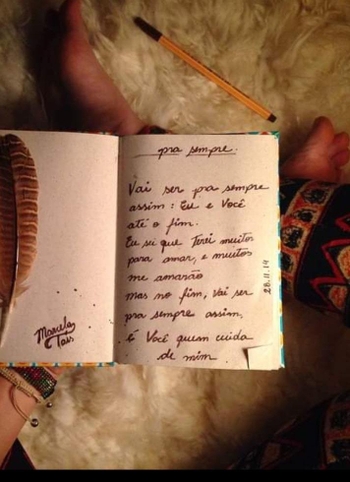 pra sempre.
Vai ser pra sempre
assim: Eu e Você
até o fim.
Eu sei que Terei muitos
para amar, e muitos
me amarão
mas no fim, Vai ser
pra sempre assim.
é Você quem cuida
de mim
28.11.14
Marcela
Tais